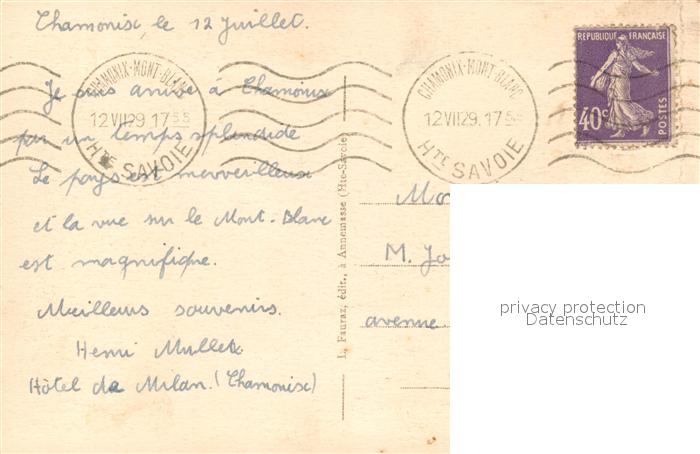 Chamonix, le 12 Juillet.
Je suis arrivé à Chamonix
par un temps splendide
Le pays est merveilleux
et la vue sur le Mont-Blanc
est magnifique.
Meilleurs souvenirs.
Henri Muller
Hôtel de Milan. (Chamonix)
CHAMONIX-MONT-BLANC
12 VII 29. 17 55
HTE SAVOIE
L. Fauraz, édit., à Annemasse (Hte-Savoie)
CHAMONIX-MONT-BLANC
12 VII 29. 17 55
HTE SAVOIE
REPUBLIQUE FRANÇAISE
40c
POSTES
M. Jo
avenue
privacy protection
Datenschutz